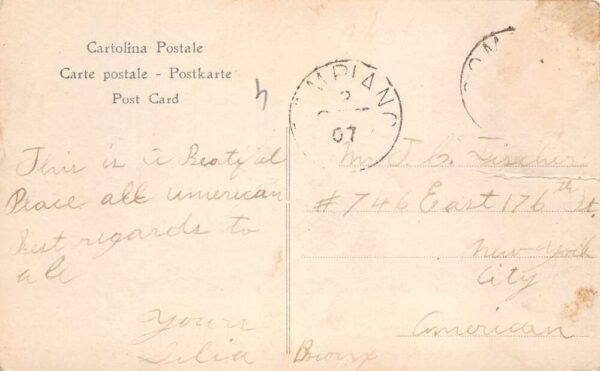 Cartolina Postale
Carte postale - Postkarte
Post Card
4
MPIANO
2
07
OM
This is a Beatiful
Pleace all american
Best regards to
all
Yours
Lilia
Mr J. C. Fischer
# 746 East 176th St.
New York
City
American
Bronx